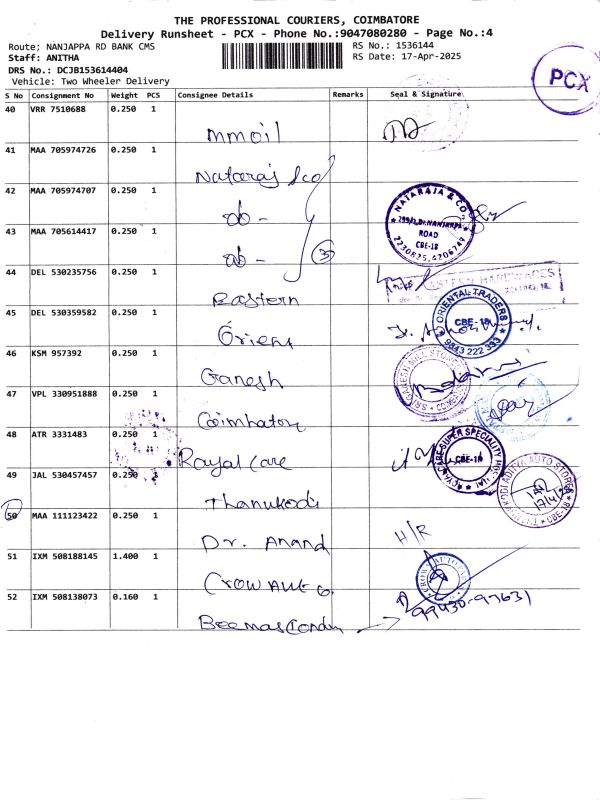 THE PROFESSIONAL COURIERS, COIMBATORE
Delivery Runsheet - PCX - Phone No.:9047080280 - Page No.:4
Route; NANJAPPA RD BANK CMS
RS No.: 1536144
Staff: ANITHA
RS Date: 17-Apr-2025
DRS No.: DCJB153614404
Vehicle: Two Wheeler Delivery
PCX
S No Consignment No Weight PCS Consignee Details Remarks Seal & Signature
40 VRR 7510688 0.250 1
mmoil
41 MAA 705974726 0.250 1
Nataraj &co
42 MAA 705974707 0.250 1
do -
NATARAJA & CO
ROAD
CBE-18
43 MAA 705614417 0.250 1
do - 3
44 DEL 530235756 0.250 1
Eastern
EASTERN HARDWARES
45 DEL 530359582 0.250 1
Orient
ORIENTAL TRADERS
CBE-18
9843 222 333
46 KSM 957392 0.250 1
Ganesh
47 VPL 330951888 0.250 1
Coimbatore
48 ATR 3331483 0.250 1
Royal Care
CARE SUPER SPECIALITY
CBE-18
49 JAL 530457457 0.250 1
Thanukodi
ADITYA AUTO STORES
50 MAA 111123422 0.250 1
Dr. Anand
H/R
51 IXM 508188145 1.400 1
Crow Aut
CROW AUTO
52 IXM 508138073 0.160 1
99430-97631